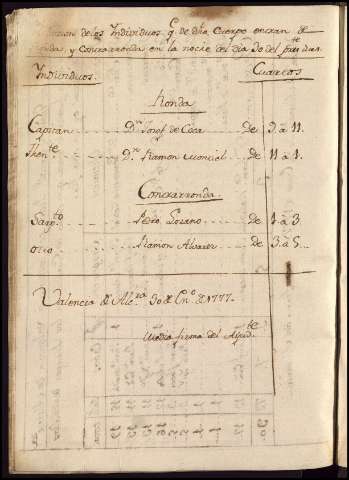 de los Individuos q.e de dho Cuerpo entran de
Ronda, y Contrarronda en la noche del dia 30 del
Individuos. Cuartos
Ronda
Capitan D.n Josef de Coca de 9 a 11.
Then.te D.n Ramon de 11 a 1.
Contrarronda
Sarg.to Pedro Lozano de 1 a 3
otro Ramon Alvarez de 3 a 5
Valencia de Alc.ra 30 de En.o de 1777
Media firma del Ayud.te